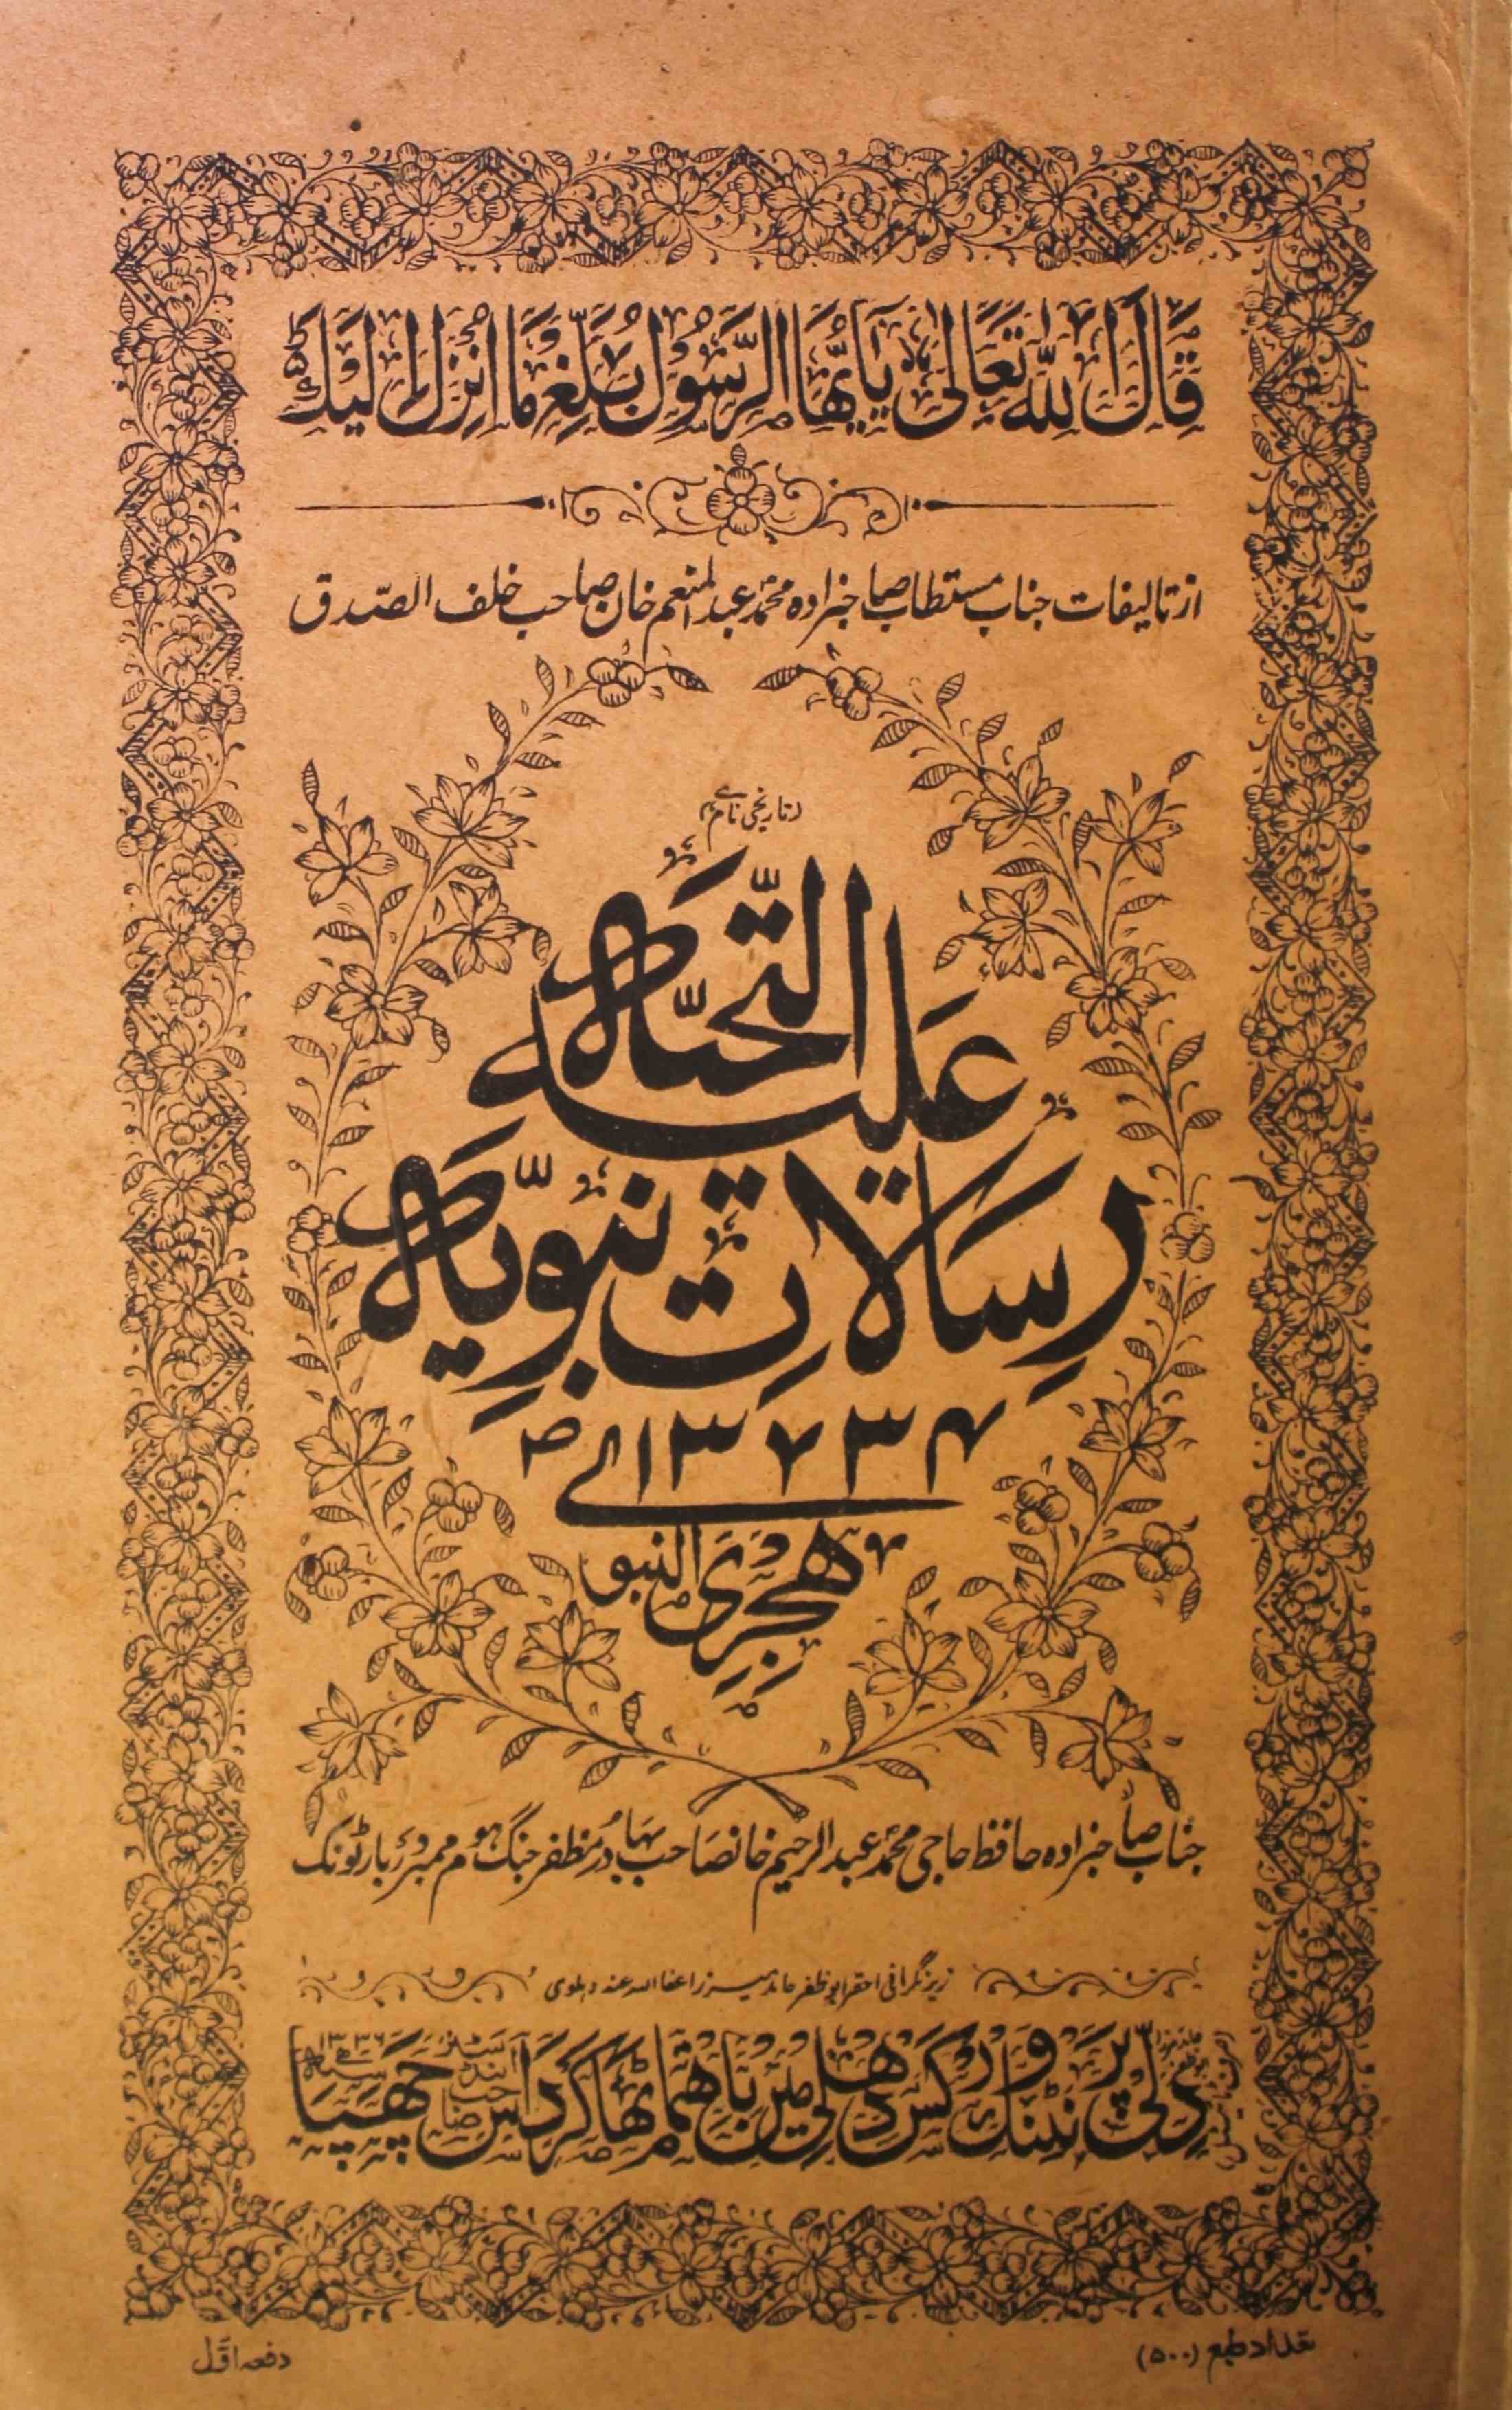 قَالَ اللّٰهُ تَعَالٰى يَا أَيُّهَا الرَّسُوْلُ بَلِّغْ مَا اُنْزِلَ اِلَيْكَ
از تالیفات جناب مستطاب صاحبزادہ محمد عبد المنعم خان صاحب خلف الصّدق
تاریخی نام
عليه التّحيّة
رِسَالاتِ نبويّة
هجرى النبو
جناب صاحبزادہ حافظ حاجی محمد عبد الرحیم خانصاحب بہادر مظفر جنگ ہوم ممبر دربار ٹونک
زیر نگرانی احقر ابو ظفر حامد میرزا عفا اللہ عنہ دہلوی
دلی پرنٹنگ ورکس دهلی میں باهتمام ٹھاکرداس اینڈ سنز چھپیا
تعداد طبع (۵۰۰)
دفعہ اوّل